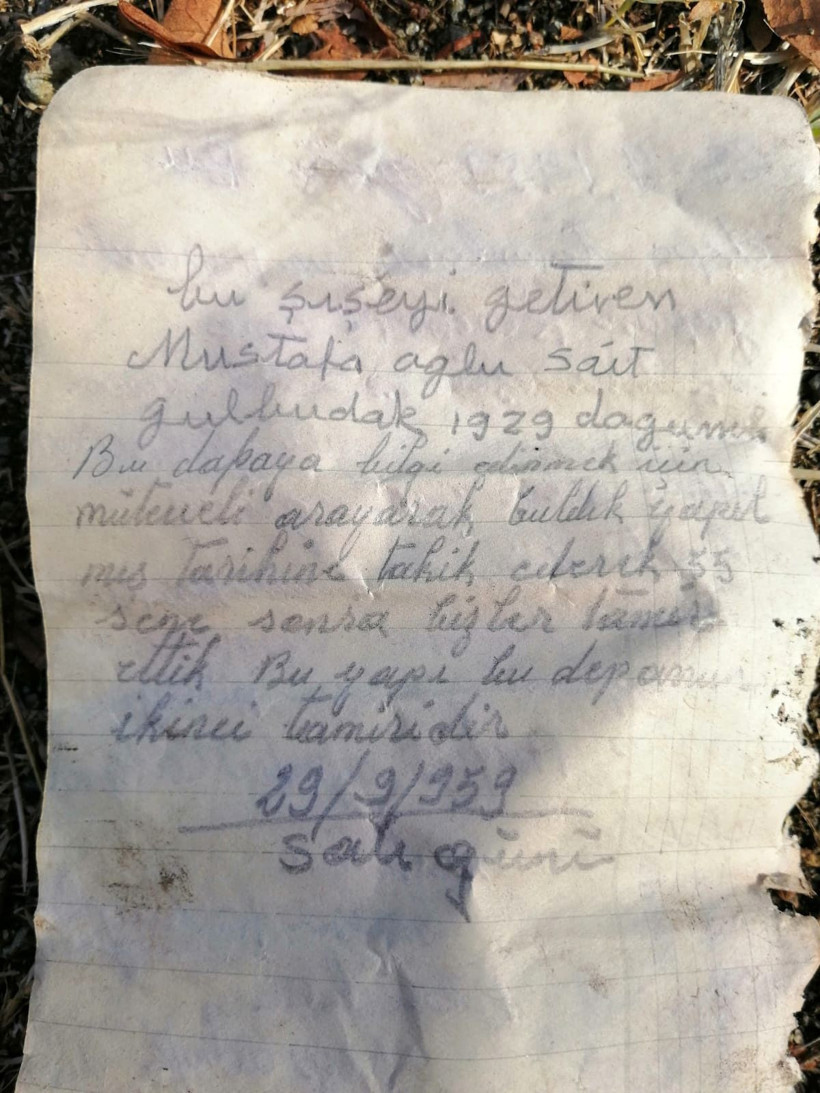 bu şışeyi getiren
Mustafa oglu sáit
gulbudak 1929 dogumlu
Bu dapaya bilgi edinmek için
müteveli arayarak bulduk yapıl
mış tarihine takik ederek 55
sene sonra bizler tamir
ettik Bu yapı bu deponun
ikinci tamiridir
29/9/959
salı günü